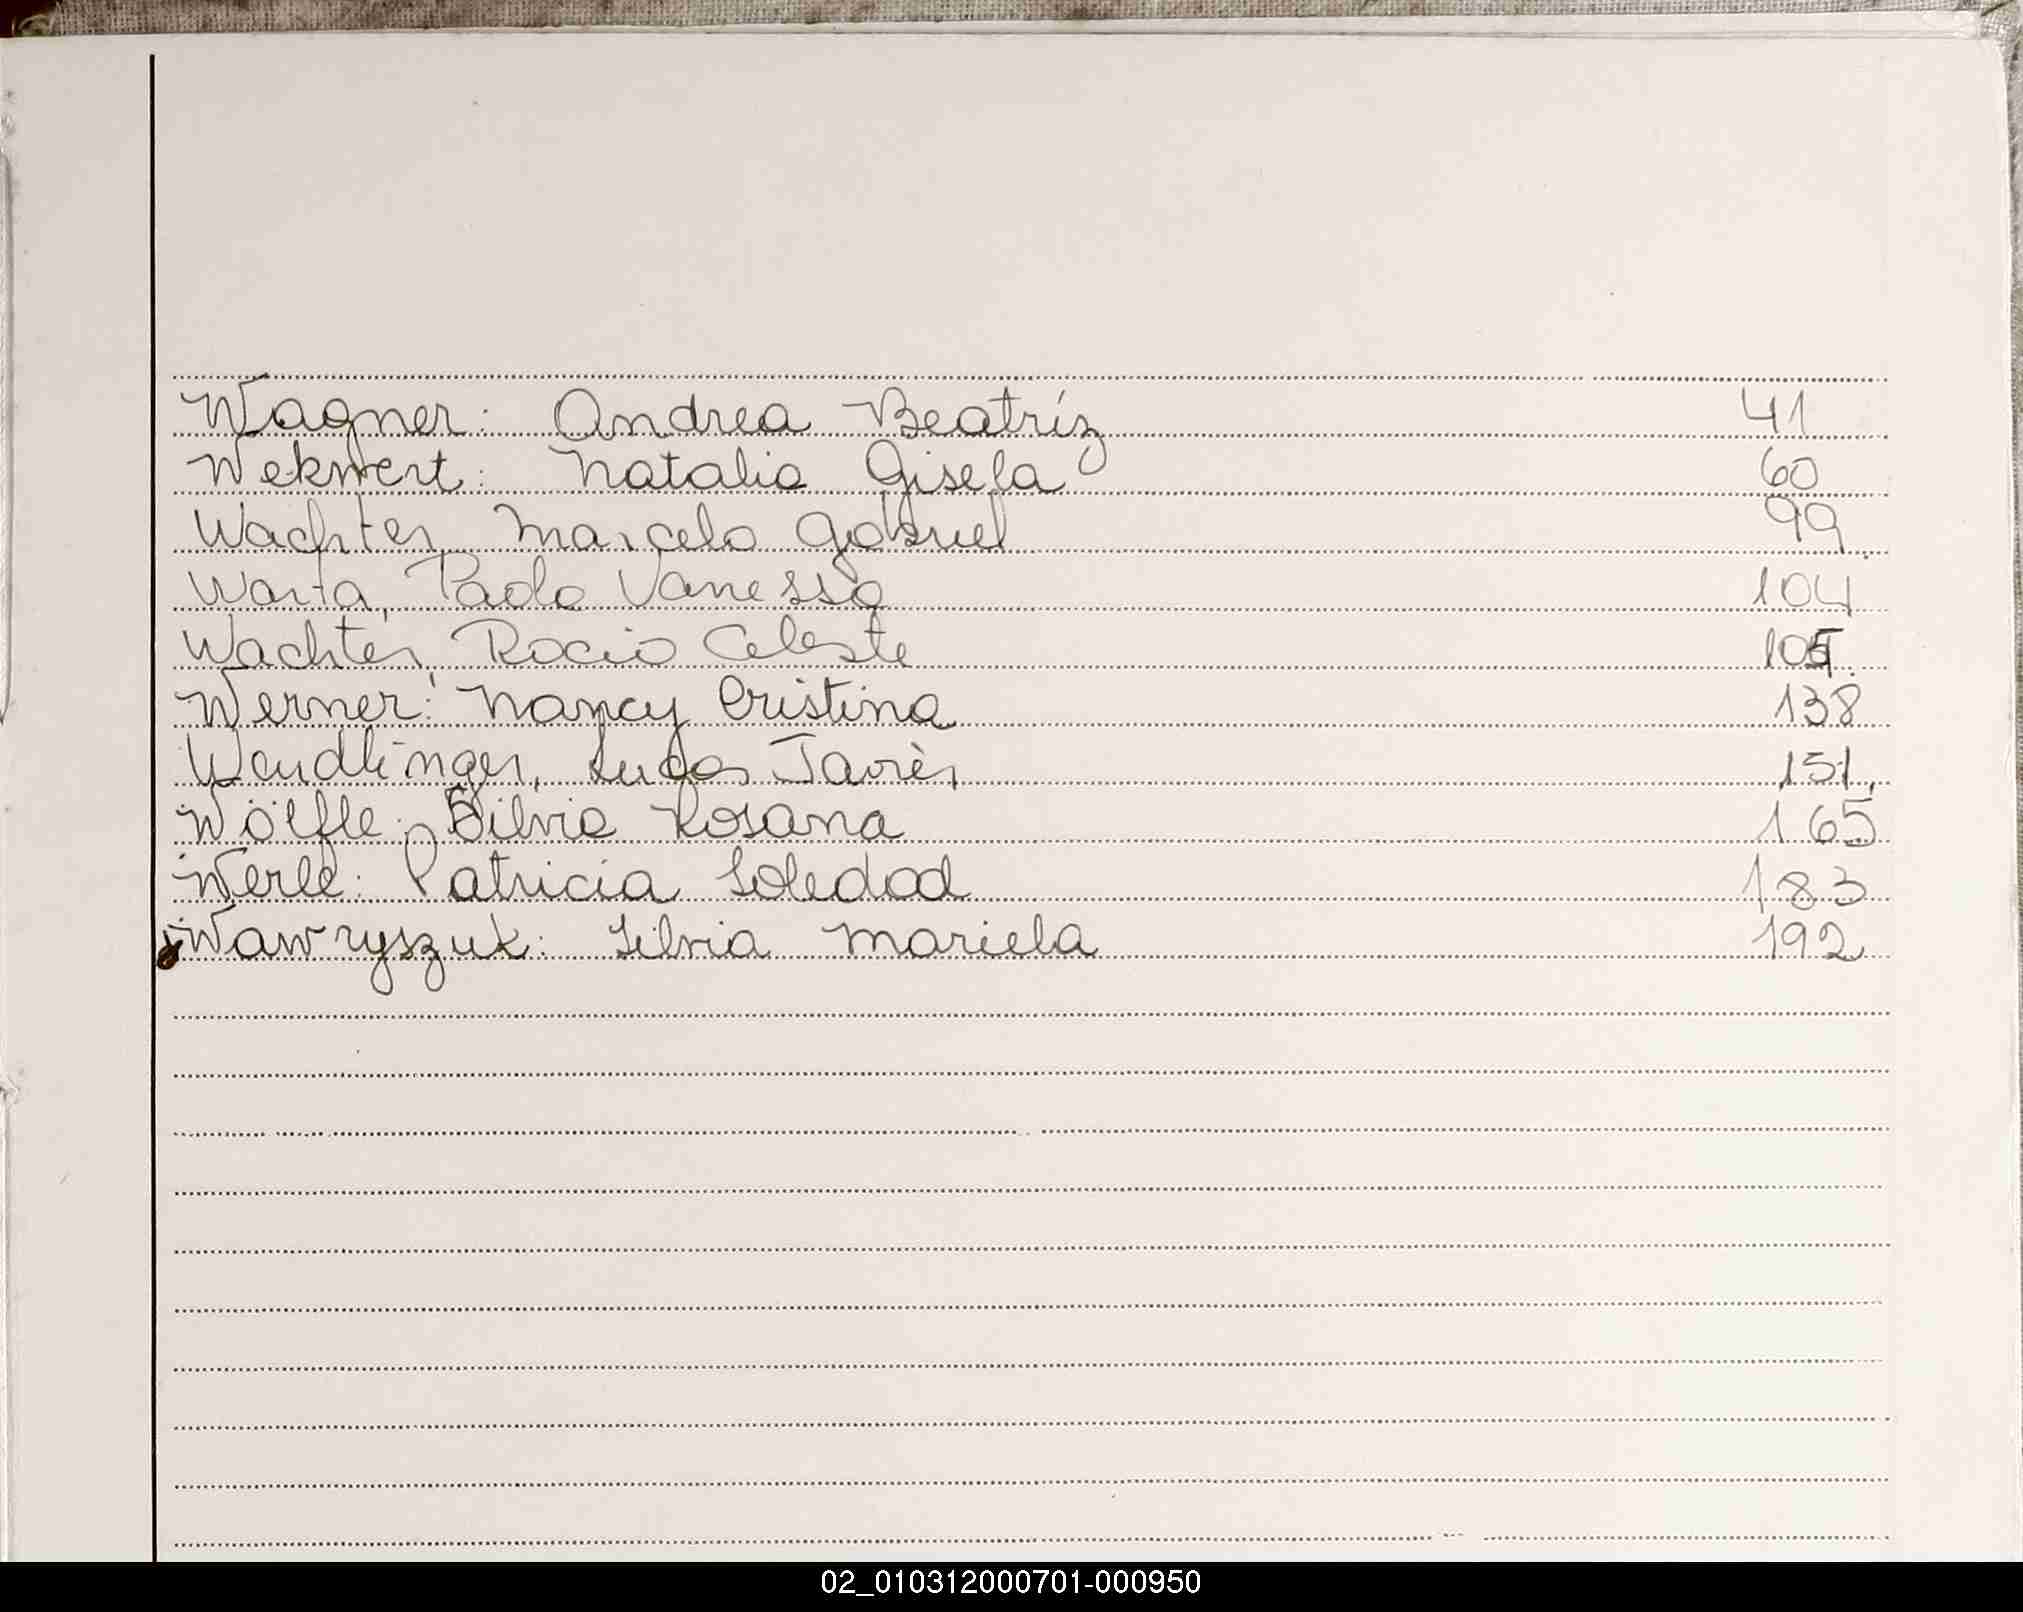 Wagner: Andrea Beatríz 41
Wekwert: Natalia Gisela 60
Wachter, Marcelo Gabriel 99
Warta, Paola Vanessa 104
Wachter, Rocio Celeste
Werner: Nancy Cristina 138
Wendlinger, Lucas Javier 151
Wölfle: Silvia Rosana 165
Werle: Patricia Soledad 183
Wawryszuk: Silvia Mariela 192
02_010312000701-000950